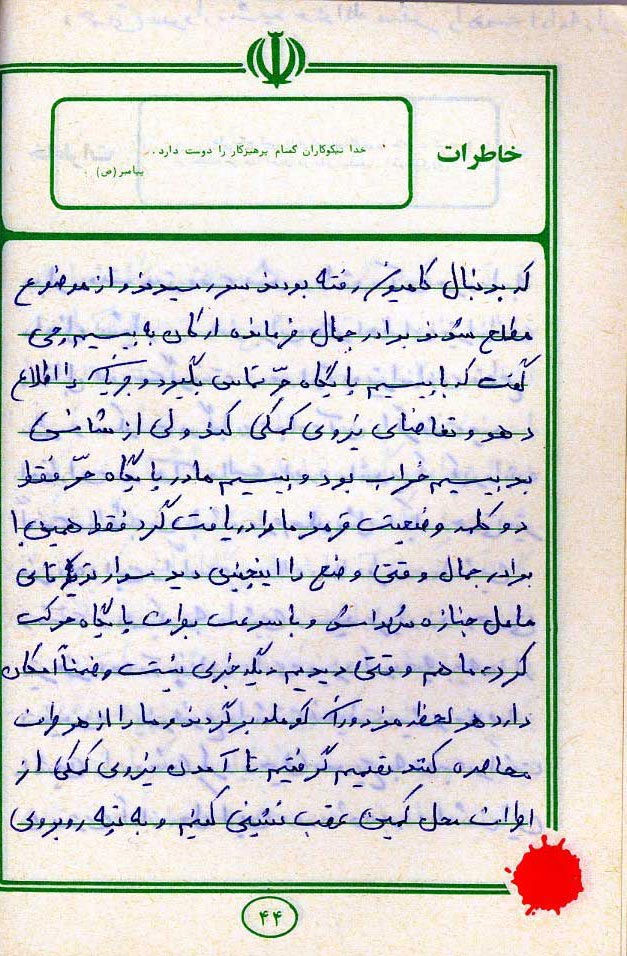 خاطرات
خدا نیکوکاران گمنام پرهیزکار را دوست دارد.
پیامبر (ص)
که بدنبال کامیون رفته بودند سر رسیدند و از موضوع
مطلع شوند برادر جمال فرمانده ارکان به بیسیم‌چی
گفت که با بیسیم با پایگاه حرّ تماس بگیرد و جریان را اطلاع
دهد و تقاضای نیروی کمکی کند ولی از شانس
بد بیسیم خراب بود و بیسیم ما در پایگاه حرّ فقط
دو کلمه وضعیت قرمز ما را دریافت کرد فقط همین!
برادر جمال وقتی وضع را اینچنین دید سوار تویوتای
حامل جنازه شهدا شد و با سرعت بطرف پایگاه حرکت
کرد، ما هم وقتی دیدیم دیگر خبری نیست و ضمناً امکان
دارد هر لحظه مزدوران کومله برگردند و ما را از هر طرف
محاصره کنند تصمیم گرفتیم تا آمدن نیروی کمکی از
اطراف محل کمین عقب نشینی کنیم و به تپه روبروی
۴۴